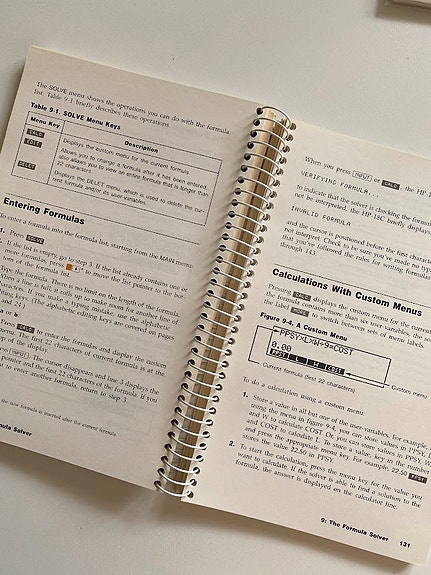 The SOLVE menu shows the operations you can do with the formula
list. Table 9-1 briefly describes these operations.
Table 9-1. SOLVE Menu Keys
Menu Key Description
CALC Displays the custom menu for the current formula.
EDIT Allows you to change a formula after it has been entered;
also allows you to view an entire formula that is longer than
22 characters.
DELET Displays the DELET menu, which is used to delete the cur-
rent formula and/or its user-variables.
Entering Formulas
To enter a formula into the formula list, starting from the MAIN menu:
1. Press SOLVE
2. If the list is empty, go to step 3. If the list already contains one or
more formulas, press to move the list pointer to the bot-
tom of the formula list.
Type the formula. There is no limit on the length of the formula.
When a line is full, it rolls up to make room for another line of
typing. If you make a typing mistake, use the alphabetic
editing keys. (The alphabetic editing keys are covered on pages
24.)
a or b
Press CALC to enter the formula and display the custom
The first 22 characters of current formula is at the
top of the display.
INPUT. The cursor disappears and line 3 displays the
pointer and the first 22 characters of the formula. If you
want to enter another formula, return to step 3.
the new formula is inserted after the current formula.
Formula Solver
When you press INPUT or CALC, the HP-1
VERIFYING FORMULA...
to indicate that the solver is checking the formula
not be interpreted, the HP-18C briefly displays
INVALID FORMULA
and the cursor is positioned before the first character
not interpret. Check to be sure you've made no typ
that you've followed the rules for writing formulas
through 143.
Calculations With Custom Menus
Pressing CALC displays the custom menu for the current
the formula contains more than six user-variables,
this label MORE to switch between sets of menu labels.
Figure 9-4. A Custom Menu
PPSY×L×W÷9=COST
0.00
PPSY L W COST
Current formula (first 22 characters)
Custom menu
To do a calculation using a custom menu:
1. Store a value in all but one of the user-variables. For example,
using the menu in figure 9-4, you can store values in PPSY, L
and W to calculate COST. Or, you can store values in PPSY, W
and COST to calculate L. To store a value, key in the number
and press the appropriate menu key. For example, 22.50 PPSY
stores the value 22.50 in PPSY.
2. To start the calculation, press the menu key for the value you
want to calculate. If the solver is able to find a solution to the
formula, the answer is displayed on the calculator line.
9: The Formula Solver 131